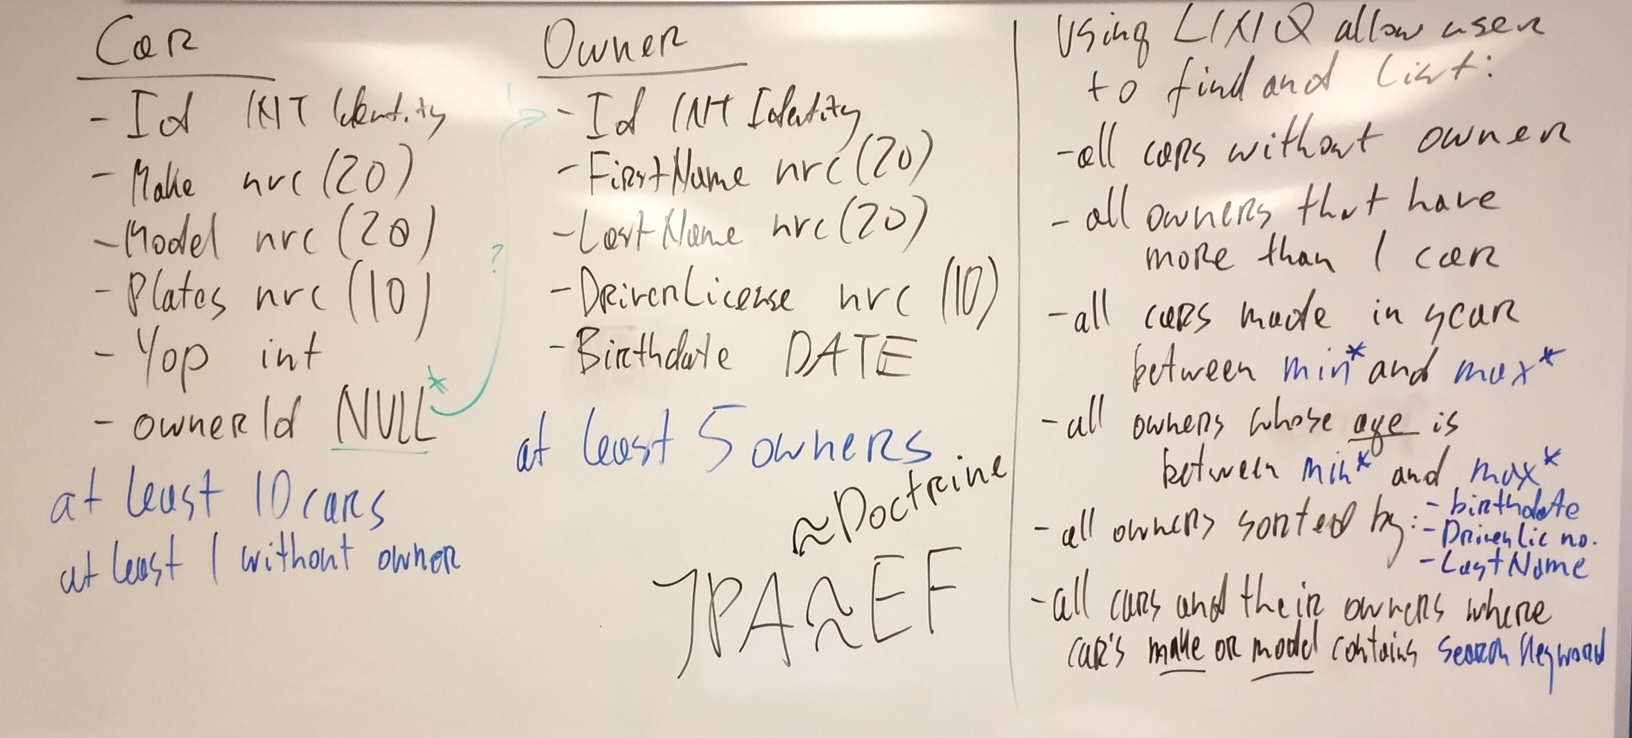 Car
- Id INT Identity
- Make nvc (20)
- Model nvc (20)
- Plates nvc (10)
- Yop int
- ownerId NULL*
at least 10 cars
at least 1 without owner
?
Owner
- Id INT Identity
- FirstName nvc (20)
- LastName nvc (20)
- DriverLicense nvc (10)
- Birthdate DATE
at least 5 owners
≈Doctrine
JPA≈EF
Using LINQ allow user
to find and list:
- all cars without owner
- all owners that have
more than 1 car
- all cars made in year
between min* and max*
- all owners whose age is
between min* and max*
- all owners sorted by: - birthdate
- DriverLic no.
- LastName
- all cars and their owners where
car's make or model contains search keyword